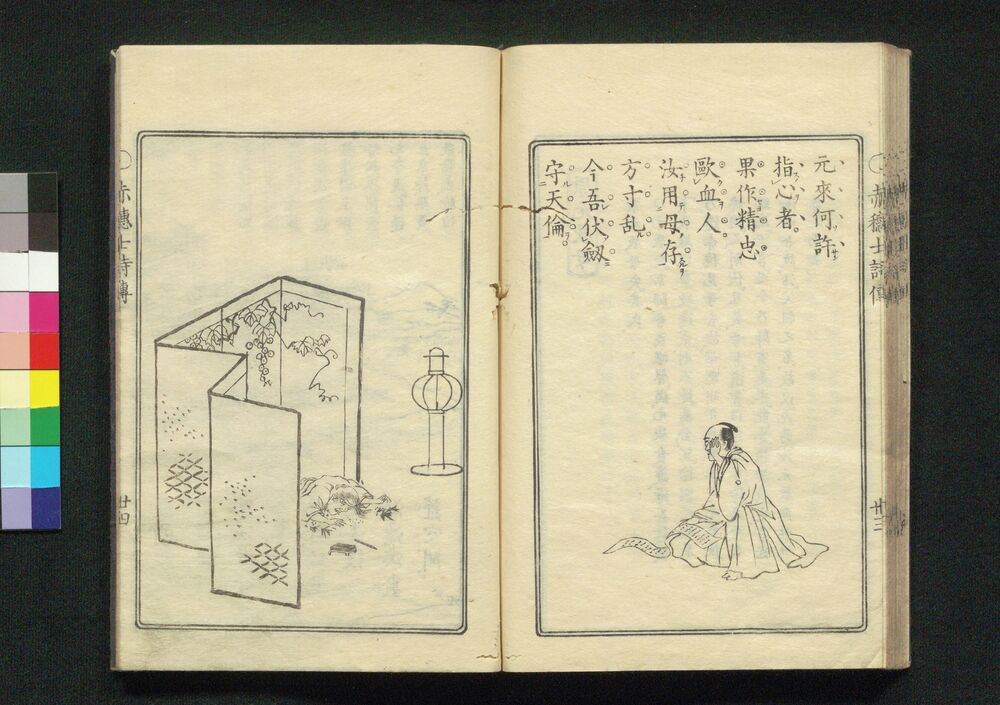 元來何許
指心者
果作精忠
歐血人
汝用母存
方寸乱
今吾伏劔
守天倫
赤穗士詩傳
廿三
赤穗士詩傳
廿四